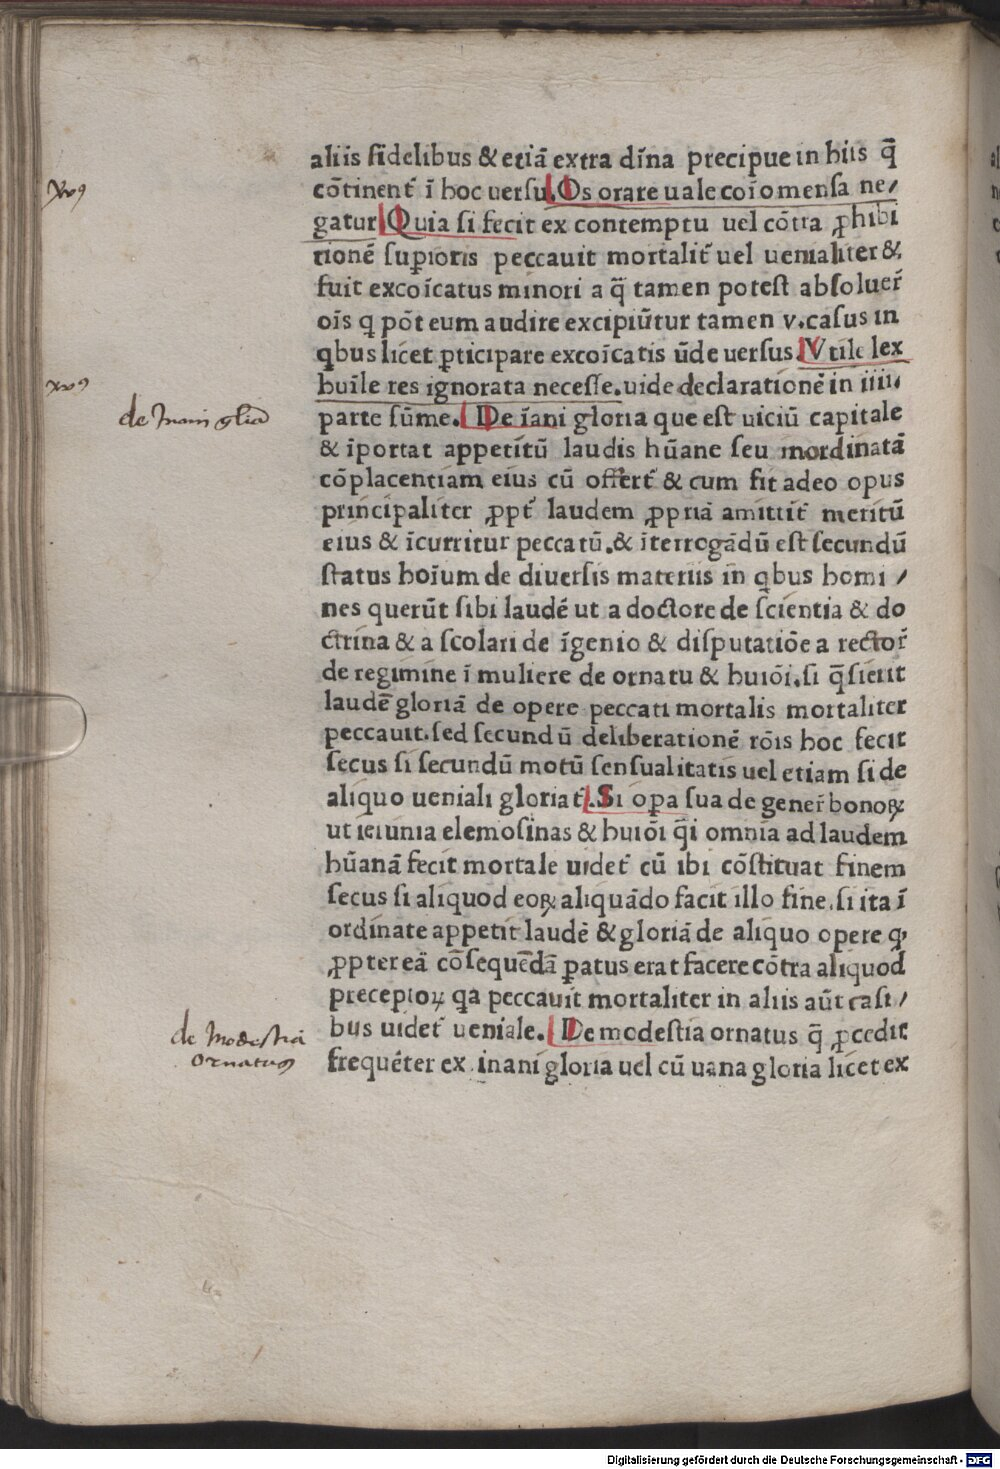 aliis fidelibus & etiā extra dīna precipue in hiis q̄
cōtinent᷑ ī hoc uersu. Os orare uale coīo mensa ne/
gatur. Quia si fecit ex contemptu uel cōtra ꝓhibi
tionē suꝑioris peccauit mortalit᷑ uel uenialiter &
fuit excoīcatus minori a q̄ tamen potest absoluer᷑
oīs q pōt eum audire excipiūtur tamen v. casus in
qbus licet ꝑticipare excoīcatis ūde uersus. Vtile lex
huīle res ignorata necesse. uide declarationē in iiii.
parte sūme. De īani gloria que est uiciū capitale
& īportat appetitū laudis hūane seu inordinatā
cōplacentiam eius cū offert᷑ & cum fit adeo opus
principaliter ꝓpt᷑ laudem ꝓpriā amittit᷑ meritū
eius & īcurritur peccatū. & īterrogādū est secundū
status hoīum de diuersis materiis in qbus homi /
nes querūt sibi laudē ut a doctore de scientia & do
ctrina & a scolari de īgenio & disputatiōe a rector᷑
de regimine ī muliere de ornatu & huiōi. si q̄sierit
laudē gloriā de opere peccati mortalis mortaliter
peccauit. sed secundū deliberationē rōis hoc fecit
secus si secundū motū sensualitatis uel etiam si de
aliquo ueniali gloriat᷑. Si oꝑa sua de gener᷑ bonoꝝ
ut ieiunia elemosinas & huiōi q̄i omnia ad laudem
hūanā fecit mortale uidet᷑ cū ibi cōstituat finem
secus si aliquod eoꝝ aliquādo facit illo fine. si ita ī
ordinate appetit laudē & gloriā de aliquo opere qꝫ
ꝓpterea cōsequēdā ꝑatus erat facere cōtra aliquod
preceptoꝝ qa peccauit mortaliter in aliis aūt casi /
bus uidet᷑ ueniale. De modestia ornatus q̄ ꝓcedit
frequēter ex inani gloria uel cū uana gloria licet ex
de inani glīa
de modestia
ornatus
Digitalisierung gefördert durch die Deutsche Forschungsgemeinschaft - DFG